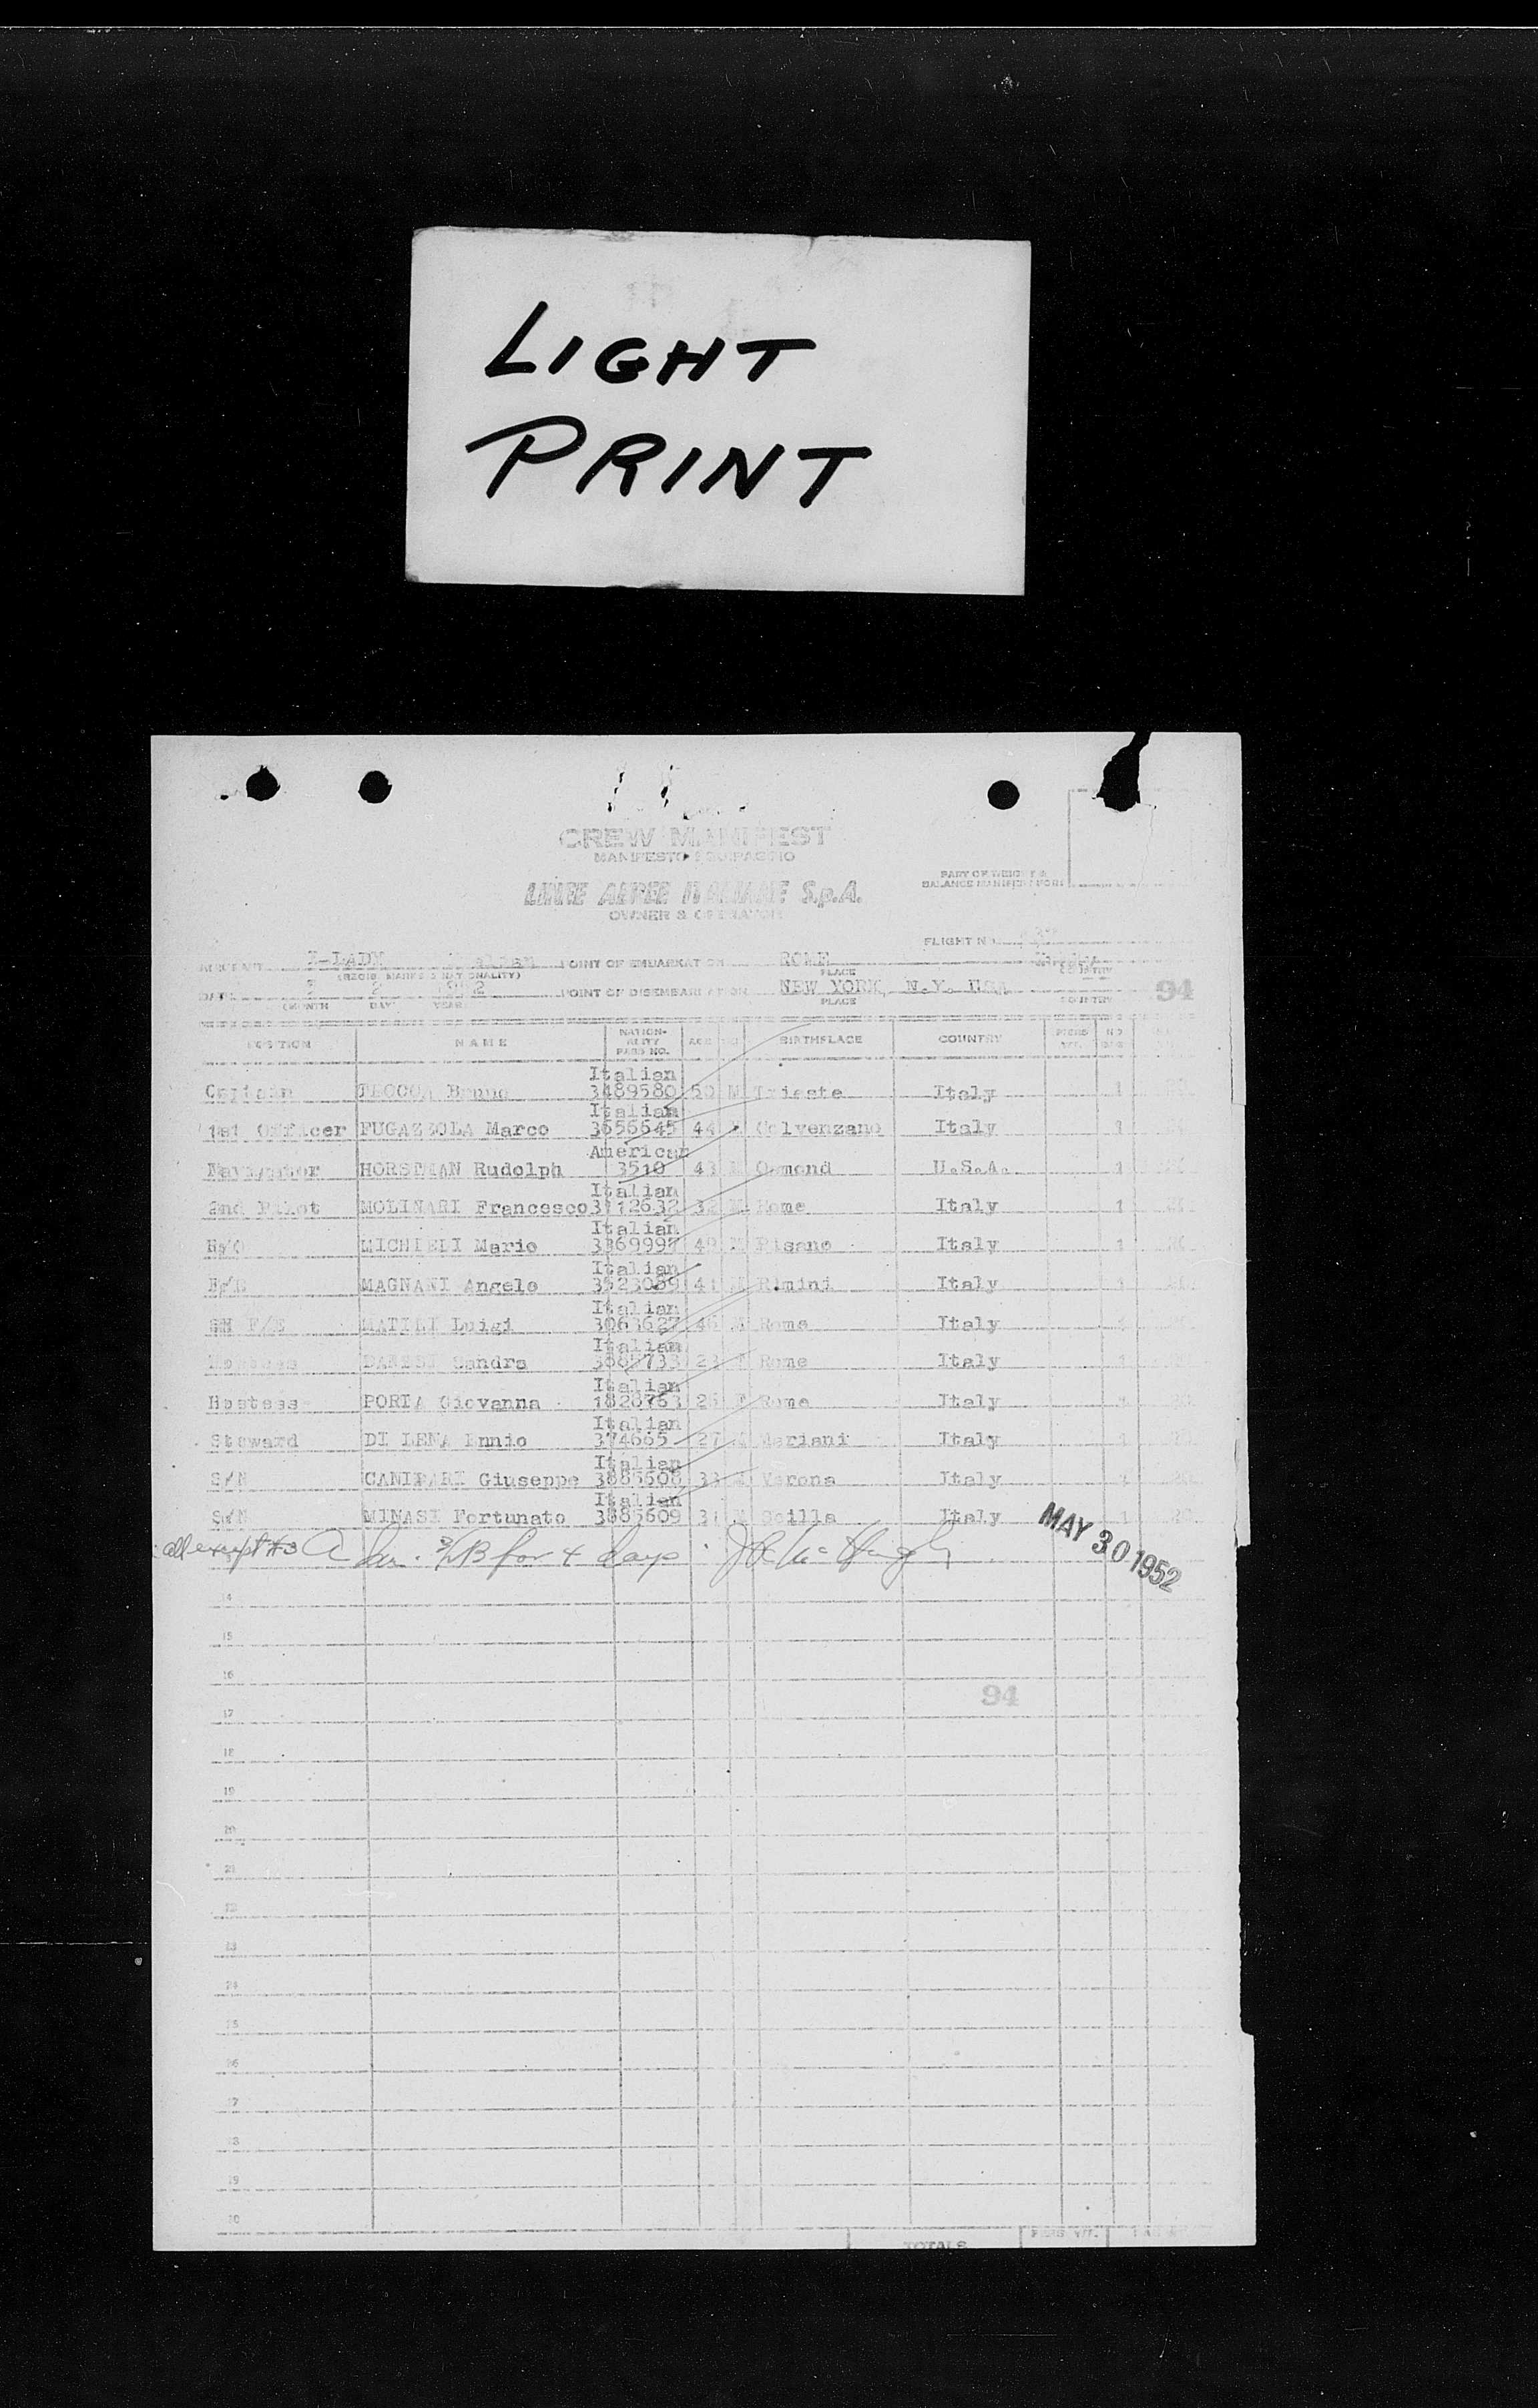 LIGHT
PRINT
CREW MANIFEST
MANIFESTO EQUIPAGGIO
LINEE AEREE ITALIANE S.p.A.
OWNER & OPERATOR
PART OF WEIGHT &
BALANCE MANIFEST FORM
FLIGHT NO.
AIRCRAFT I-LADY POINT OF EMBARKATION ROME
(REGIS. MARKS & NATIONALITY) PLACE COUNTRY
DATE 2 1952 POINT OF DISEMBARKATION NEW YORK, N.Y. USA 94
(MONTH DAY YEAR) PLACE COUNTRY
POSITION NAME NATION-ALITY PASS NO. AGE BIRTHPLACE COUNTRY
Italian
Captain Bruno 3489580 50 M Trieste Italy 1
Italian
1st Officer FUGAZZOLA Marco 3656645 44 Calvenzano Italy 1
American
Navigator HORSTMAN Rudolph 3510 43 M Osmond U.S.A. 1
Italian
2nd Pilot MOLINARI Francesco 3712632 32 M Rome Italy 1
Italian
MICHIELI Mario 3369997 49 M Pisano Italy 1
Italian
MAGNANI Angelo 3523089 41 M Rimini Italy 1
Italian
Luigi 3063627 46 M Rome Italy
Italian
Hostess DANESI Sandra 3885733 23 F Rome Italy 1
Italian
Hostess PORTA Giovanna 1828763 26 F Rome Italy
Italian
Steward DI LENA Ennio 374665 27 M Mariani Italy 1
Italian
CANIPARI Giuseppe 3885608 33 M Verona Italy
Italian
MINASI Fortunato 3885609 31 M Scilla Italy 1
all except #3 for 4 days
MAY 30 1952
14
15
16
94
17
18
19
20
21
22
23
24
25
26
27
28
29
30
TOTALS